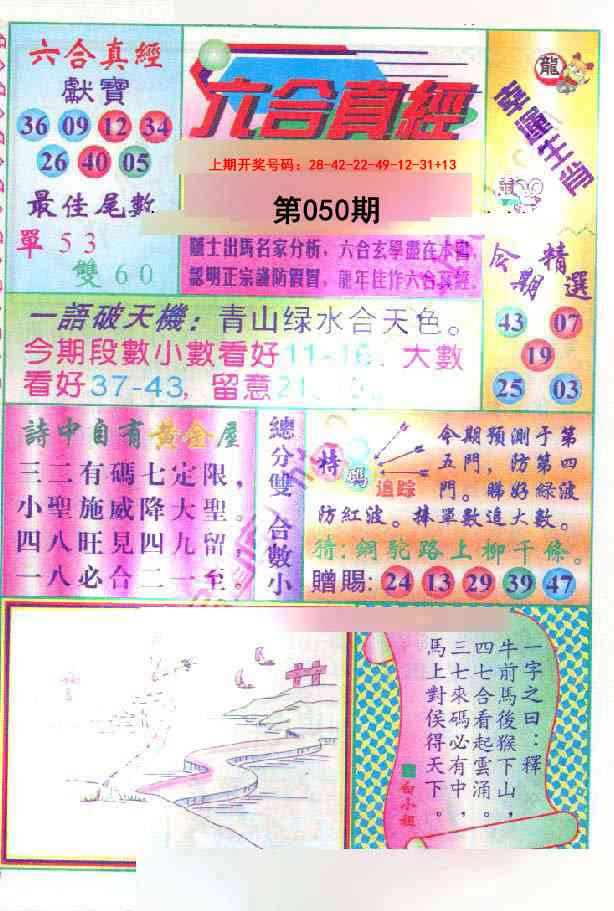 六合真經
獻寶
36 09 12 34
26 40 05
最佳尾數
單 5 3
雙 6 0
六合真經
上期开奖号码：28-42-22-49-12-31+13
第050期
隱士出馬名家分析，六合玄學盡在本書，
認明正宗謹防假冒，龍年佳作六合真經。
龍
幸運生肖
鼠
今期
精選
43 07
19
25 03
一語破天機：青山绿水合天色。
今期段數小數看好11-16，大數
看好37-43，留意21
詩中自有黄金屋
三二有碼七定限，
小聖施威降大聖。
四八旺見四九留，
一八必合二一至。
總分雙 合數小
特
碼
追踪
今期預測于第
五門，防第四
門。睇好緑波
防紅波。捧單數追大數。
猜：銅駝路上柳千條。
贈賜：24 13 29 39 47
一字之曰：釋
牛前馬後猴下山，
四七合看起雲涌。
三七來碼必有中，
馬上對侯得天下。
白小姐